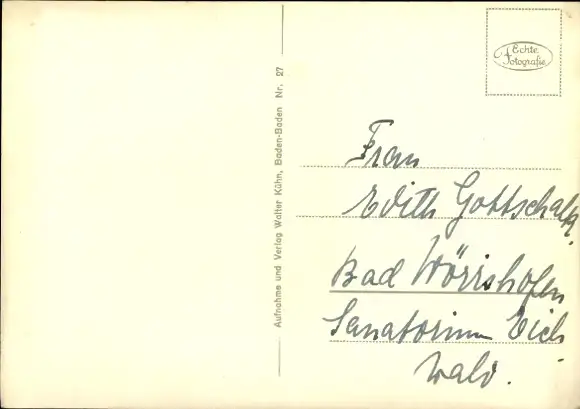 Echte
Fotografie
Aufnahme und Verlag Walter Kühn, Baden-Baden Nr. 27
Frau
Edith Gottschalk
Bad Wörrishofen
Sanatorium Eich
wald.